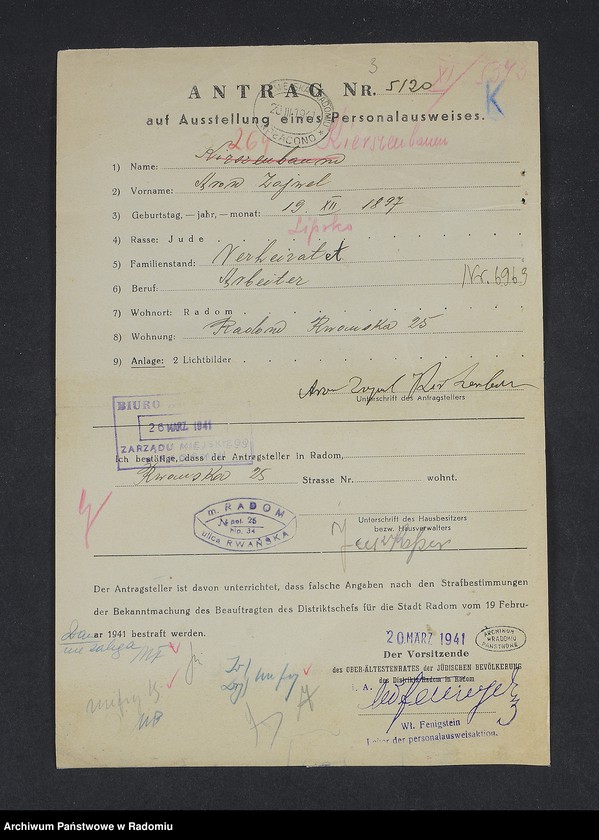 3
ANTRAG NR. 5120
XI/5393
K
auf Ausstellung eines Personalausweises.
20 III 1941
264 Kierszenbaum
1) Name: Kierszenbaum
2) Vorname: Aron Zajwel
3) Geburtstag, — jahr, — monat: 19. XII 1897
Lipsko
4) Rasse: Jude
5) Familienstand: Verheiratet
6) Beruf: Arbeiter
Nr. 6963
7) Wohnort: Radom
8) Wohnung: Radom Rwanska 25
9) Anlage: 2 Lichtbilder
Unterschrift des Antragstellers
BIURO
26 MÄRZ 1941
ZARZĄDU MIEJSKIEGO
Ich bestätige, dass der Antragsteller in Radom,
Rwanska 25 Strasse Nr. wohnt.
m. RADOM
№ pol. 25
hip. 34
ulica RWAŃSKA
Unterschrift des Hausbesitzers
bezw. Hausverwalters
Der Antragsteller ist davon unterrichtet, dass falsche Angaben nach den Strafbestimmungen
der Bekanntmachung des Beauftragten des Distriktschefs für die Stadt Radom vom 19 Febru-
ar 1941 bestraft werden.
20 MÄRZ 1941
ARCHIWUM
W RADOMIU
PAŃSTWOWE
Der Vorsitzende
des OBER-ÄLTESTENRATES der JÜDISCHEN BEVÖLKERUNG
des Distrikts Radom in Radom
i. A.
Wł. Fenigstein
Leiter der personalausweisaktion.
Archiwum Państwowe w Radomiu